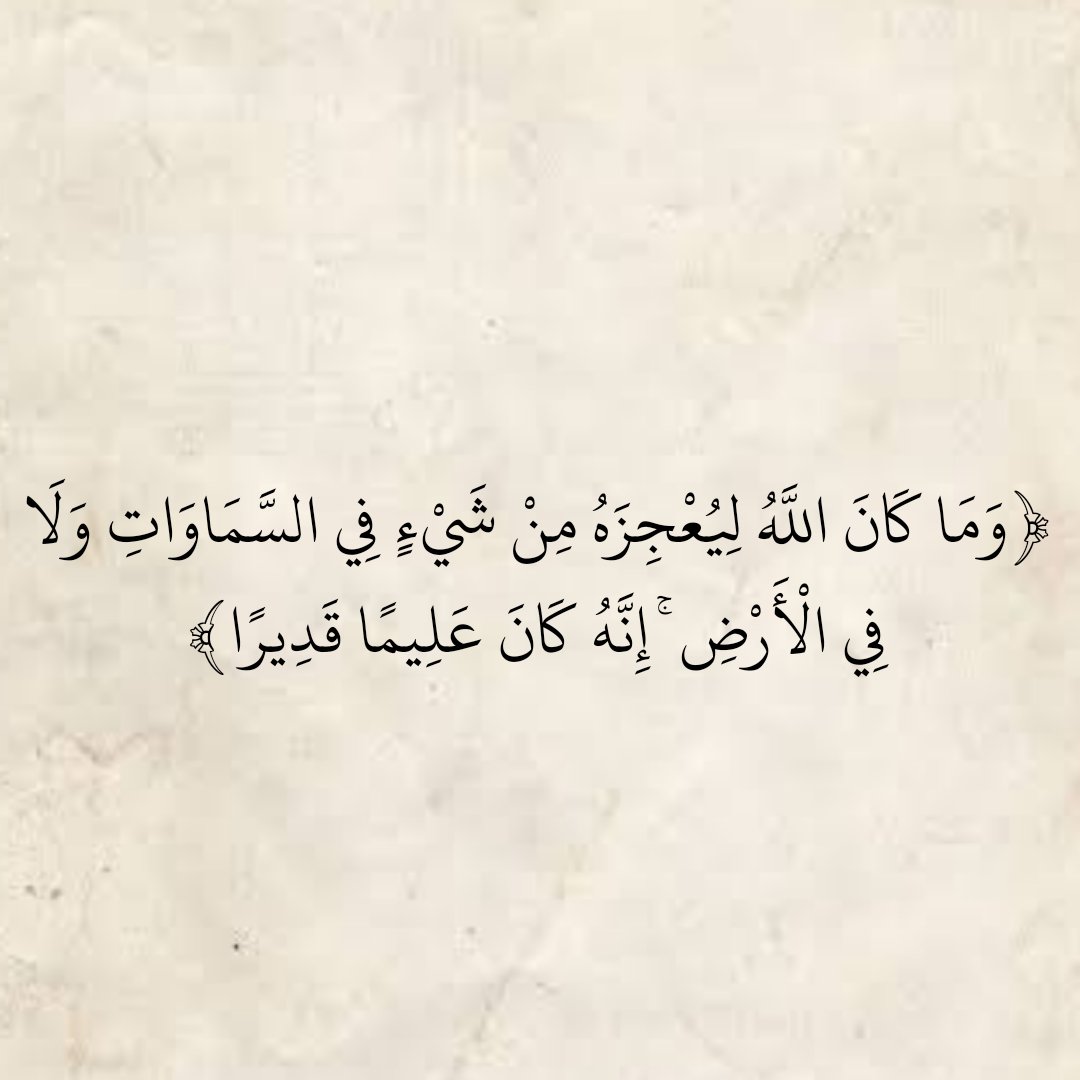 ﴿وَمَا كَانَ اللَّهُ لِيُعْجِزَهُ مِنْ شَيْءٍ فِي السَّمَاوَاتِ وَلَا
فِي الْأَرْضِ ۚ إِنَّهُ كَانَ عَلِيمًا قَدِيرًا﴾